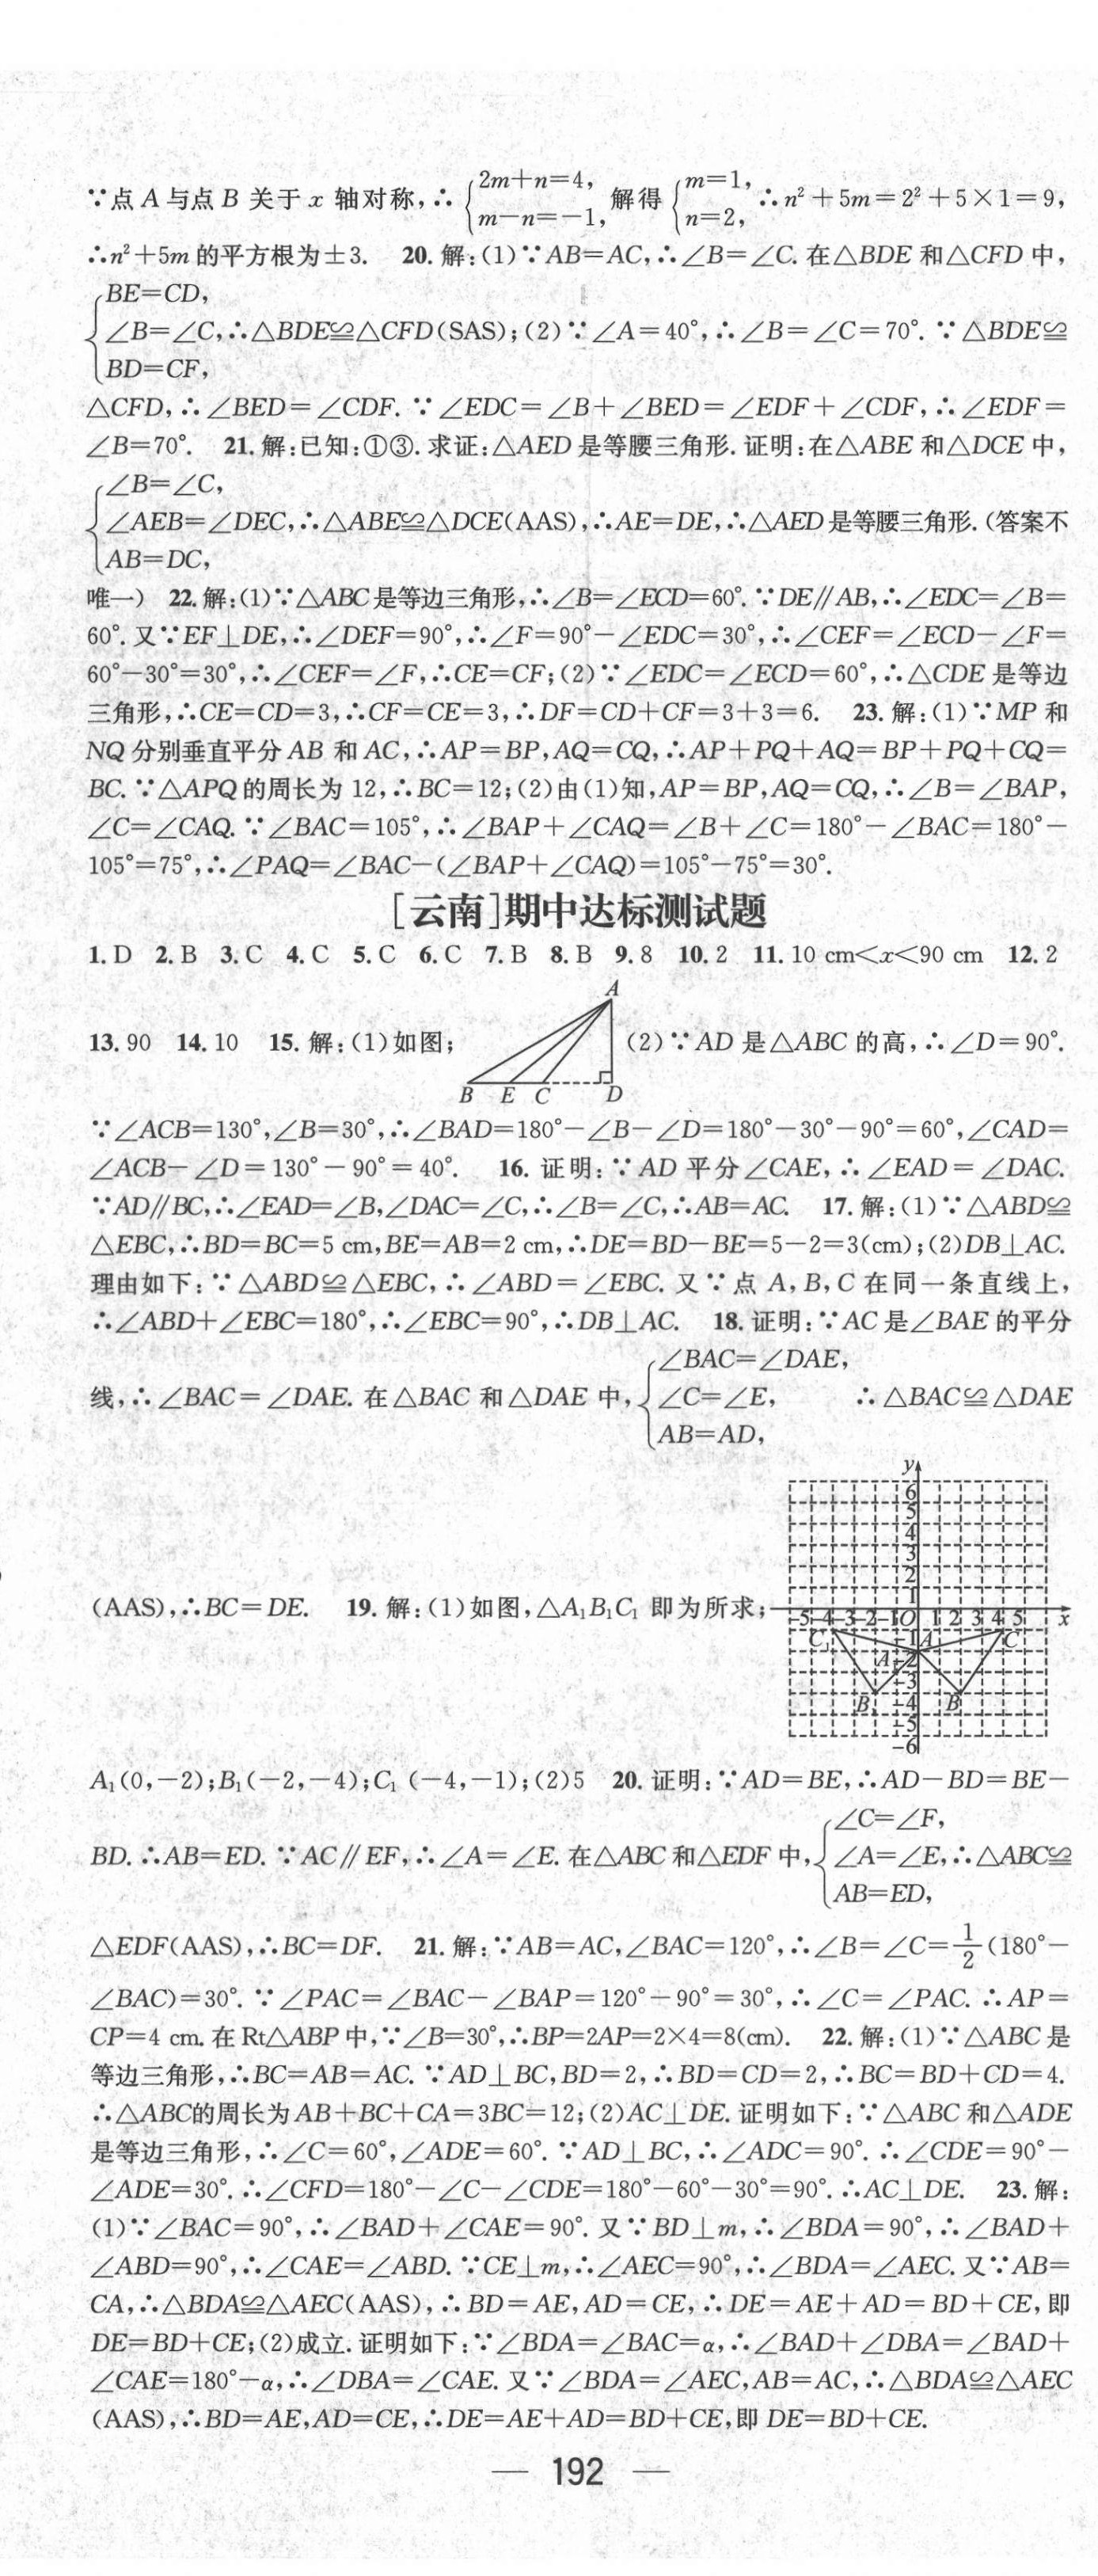 ∵点 A 与点 B 关于 x 轴对称,∴{2m+n=4, m−n=−1, 解得{m=1, n=2, ∴n²+5m=2²+5×1=9,
∴n²+5m 的平方根为±3. 20. 解:(1)∵AB=AC,∴∠B=∠C. 在△BDE 和△CFD 中,
{BE=CD,
∠B=∠C,∴△BDE≌△CFD(SAS);(2)∵∠A=40°,∴∠B=∠C=70°. ∵△BDE≌
BD=CF,
△CFD,∴∠BED=∠CDF. ∵∠EDC=∠B+∠BED=∠EDF+∠CDF,∴∠EDF=
∠B=70°. 21. 解:已知:①③. 求证:△AED 是等腰三角形. 证明:在△ABE 和△DCE 中,
{∠B=∠C,
∠AEB=∠DEC,∴△ABE≌△DCE(AAS),∴AE=DE,∴△AED 是等腰三角形. (答案不
AB=DC,
唯一) 22. 解:(1)∵△ABC 是等边三角形,∴∠B=∠ECD=60°. ∵DE∥AB,∴∠EDC=∠B=
60°. 又∵EF⊥DE,∴∠DEF=90°,∴∠F=90°−∠EDC=30°,∴∠CEF=∠ECD−∠F=
60°−30°=30°,∴∠CEF=∠F,∴CE=CF;(2)∵∠EDC=∠ECD=60°,∴△CDE 是等边
三角形,∴CE=CD=3,∴CF=CE=3,∴DF=CD+CF=3+3=6. 23. 解:(1)∵MP 和
NQ 分别垂直平分 AB 和 AC,∴AP=BP,AQ=CQ,∴AP+PQ+AQ=BP+PQ+CQ=
BC. ∵△APQ 的周长为 12,∴BC=12;(2)由(1)知,AP=BP,AQ=CQ,∴∠B=∠BAP,
∠C=∠CAQ. ∵∠BAC=105°,∴∠BAP+∠CAQ=∠B+∠C=180°−∠BAC=180°−
105°=75°,∴∠PAQ=∠BAC−(∠BAP+∠CAQ)=105°−75°=30°.
[云南]期中达标测试题
1. D 2. B 3. C 4. C 5. C 6. C 7. B 8. B 9. 8 10. 2 11. 10 cm<x<90 cm 12. 2
A
13. 90 14. 10 15. 解:(1)如图; (2)∵AD 是△ABC 的高,∴∠D=90°.
B E C D
∵∠ACB=130°,∠B=30°,∴∠BAD=180°−∠B−∠D=180°−30°−90°=60°,∠CAD=
∠ACB−∠D=130°−90°=40°. 16. 证明:∵AD 平分∠CAE,∴∠EAD=∠DAC.
∵AD∥BC,∴∠EAD=∠B,∠DAC=∠C,∴∠B=∠C,∴AB=AC. 17. 解:(1)∵△ABD≌
△EBC,∴BD=BC=5 cm,BE=AB=2 cm,∴DE=BD−BE=5−2=3(cm);(2)DB⊥AC.
理由如下:∵△ABD≌△EBC,∴∠ABD=∠EBC. 又∵点 A,B,C 在同一条直线上,
∴∠ABD+∠EBC=180°,∴∠EBC=90°,∴DB⊥AC. 18. 证明:∵AC 是∠BAE 的平分
{∠BAC=∠DAE,
线,∴∠BAC=∠DAE. 在△BAC 和△DAE 中, ∠C=∠E, ∴△BAC≌△DAE
AB=AD,
y
6
5
4
3
2
1
(AAS),∴BC=DE. 19. 解:(1)如图,△A₁B₁C₁ 即为所求;
−5−4−3−2−1O 1 2 3 4 5 x
C₁ −1 A C
A₁ −2
−3
B₁ −4 B
−5
−6
A₁(0,−2);B₁(−2,−4);C₁ (−4,−1);(2)5 20. 证明:∵AD=BE,∴AD−BD=BE−
{∠C=∠F,
BD. ∴AB=ED. ∵AC∥EF,∴∠A=∠E. 在△ABC 和△EDF 中, ∠A=∠E,∴△ABC≌
AB=ED,
△EDF(AAS),∴BC=DF. 21. 解:∵AB=AC,∠BAC=120°,∴∠B=∠C=1/2(180°−
∠BAC)=30°. ∵∠PAC=∠BAC−∠BAP=120°−90°=30°,∴∠C=∠PAC. ∴AP=
CP=4 cm. 在 Rt△ABP 中,∵∠B=30°,∴BP=2AP=2×4=8(cm). 22. 解:(1)∵△ABC 是
等边三角形,∴BC=AB=AC. ∵AD⊥BC,BD=2,∴BD=CD=2,∴BC=BD+CD=4.
∴△ABC的周长为 AB+BC+CA=3BC=12;(2)AC⊥DE. 证明如下:∵△ABC 和△ADE
是等边三角形,∴∠C=60°,∠ADE=60°. ∵AD⊥BC,∴∠ADC=90°. ∴∠CDE=90°−
∠ADE=30°. ∴∠CFD=180°−∠C−∠CDE=180°−60°−30°=90°. ∴AC⊥DE. 23. 解:
(1)∵∠BAC=90°,∴∠BAD+∠CAE=90°. 又∵BD⊥m,∴∠BDA=90°,∴∠BAD+
∠ABD=90°,∴∠CAE=∠ABD. ∵CE⊥m,∴∠AEC=90°,∴∠BDA=∠AEC. 又∵AB=
CA,∴△BDA≌△AEC(AAS),∴BD=AE,AD=CE,∴DE=AE+AD=BD+CE,即
DE=BD+CE;(2)成立. 证明如下:∵∠BDA=∠BAC=α,∴∠BAD+∠DBA=∠BAD+
∠CAE=180°−α,∴∠DBA=∠CAE. 又∵∠BDA=∠AEC,AB=AC,∴△BDA≌△AEC
(AAS),∴BD=AE,AD=CE,∴DE=AE+AD=BD+CE,即 DE=BD+CE.
— 192 —